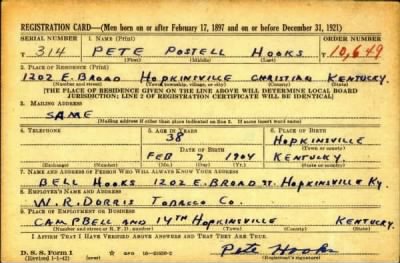 REGISTRATION CARD—(Men born on or after February 17, 1897 and on or before December 31, 1921)
SERIAL NUMBER 1. NAME (Print) ORDER NUMBER
T 314 PETE POSTELL HOOKS T 10,649
(First) (Middle) (Last)
2. PLACE OF RESIDENCE (Print)
1202 E. BROAD HOPKINSVILLE CHRISTIAN KENTUCKY.
(Number and street) (Town, township, village, or city) (County) (State)
[THE PLACE OF RESIDENCE GIVEN ON THE LINE ABOVE WILL DETERMINE LOCAL BOARD
JURISDICTION; LINE 2 OF REGISTRATION CERTIFICATE WILL BE IDENTICAL]
3. MAILING ADDRESS
SAME
[Mailing address if other than place indicated on line 2. If same insert word same]
4. TELEPHONE 5. AGE IN YEARS 6. PLACE OF BIRTH
38 HOPKINSVILLE
DATE OF BIRTH (Town or county)
FEB 7 1904 KENTUCKY.
(Exchange) (Number) (Mo.) (Day) (Yr.) (State or country)
7. NAME AND ADDRESS OF PERSON WHO WILL ALWAYS KNOW YOUR ADDRESS
BELL HOOKS 1202 E. BROAD ST. HOPKINSVILLE KY.
8. EMPLOYER'S NAME AND ADDRESS
W. R. DORRIS TOBACCO CO.
9. PLACE OF EMPLOYMENT OR BUSINESS
CAMPBELL AND 14TH HOPKINSVILLE KENTUCKY.
(Number and street or R. F. D. number) (Town) (County) (State)
I AFFIRM THAT I HAVE VERIFIED ABOVE ANSWERS AND THAT THEY ARE TRUE.
D. S. S. Form 1
(Revised 1-1-42) (over)
Pete Hooks
(Registrant's signature)